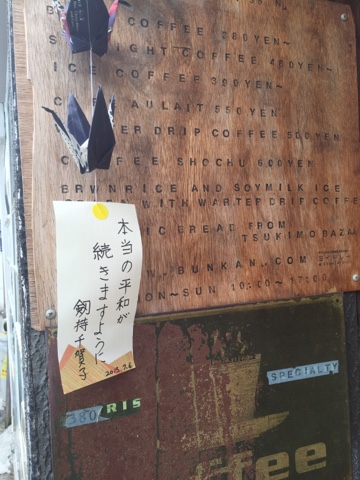 COFFEE 380YEN~
IGHT COFFEE 480YEN~
ICE COFFEE 390YEN~
AULAIT 550YEN
ER DRIP COFFEE 500YEN
FEE SHOCHU 600YEN
BRWNRICE AND SOYMILK ICE
WITH WARTER DRIP COFFE
IC BREAD FROM
TSUKIMO BAZAA
BUNKAN COM
ON~SUN 10:00~17:00
本当の平和が
続きますように
劔持千賀子
2015.7.6
380 RIS
SPECIALTY
ffee